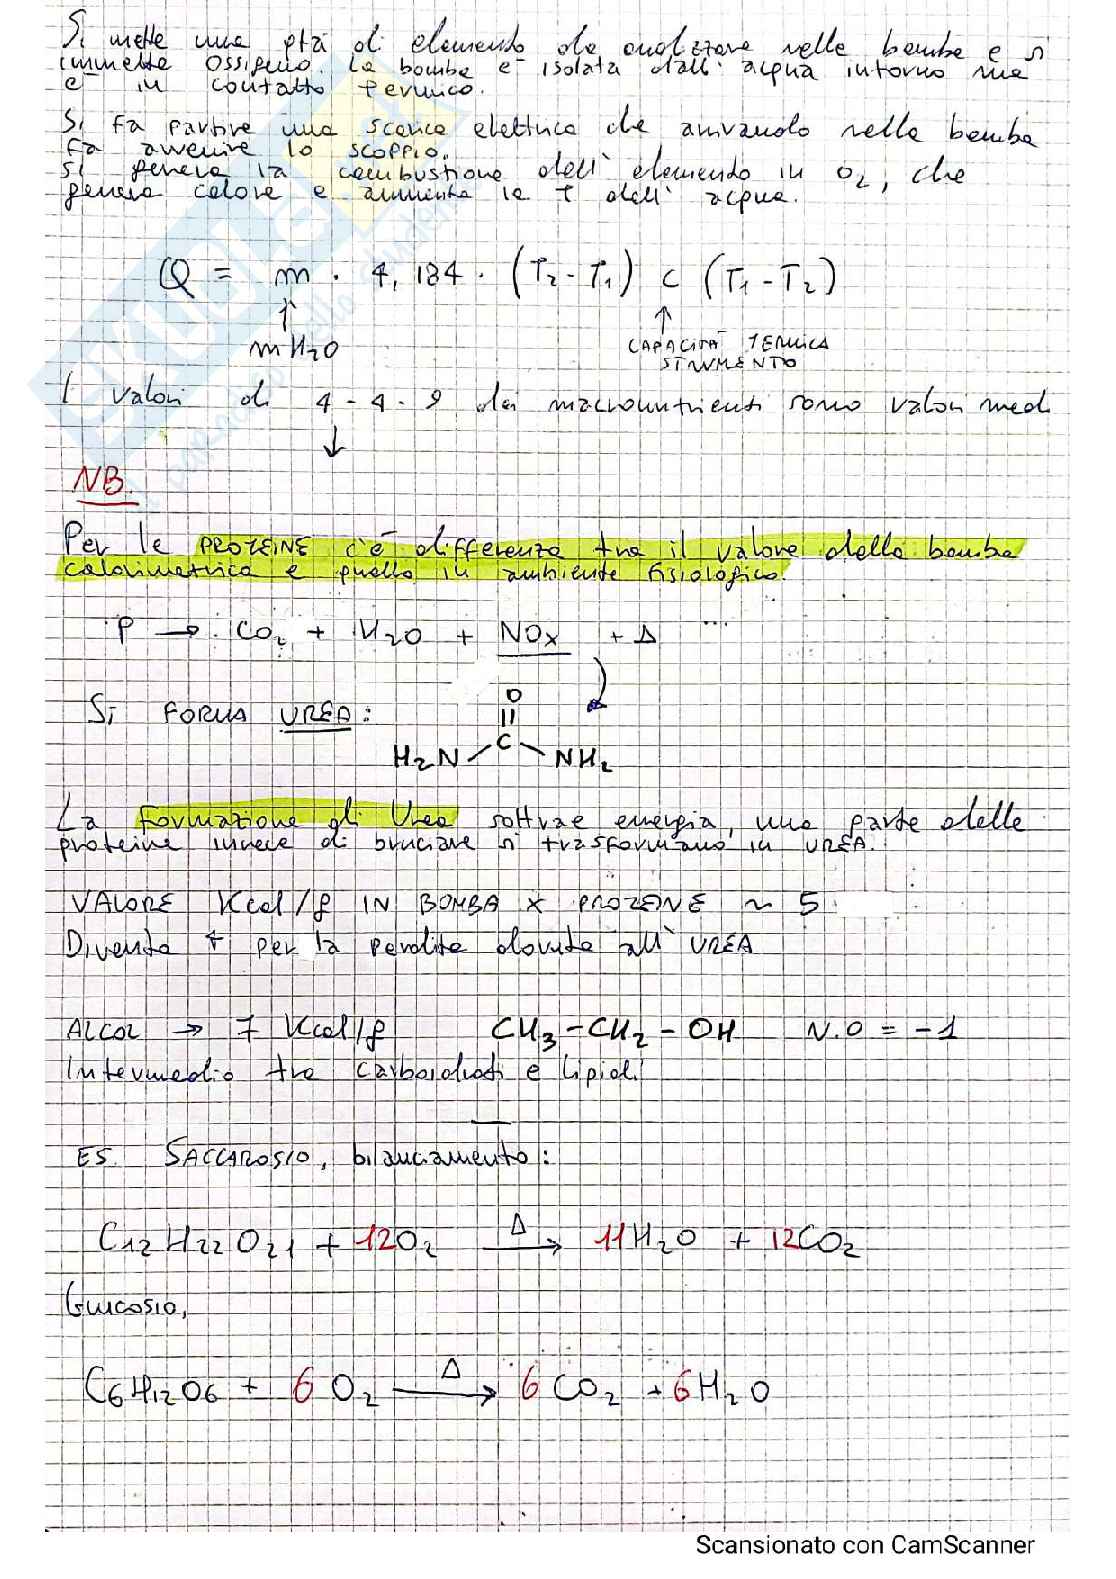 Si mette una qtà di elemento da analizzare nella bomba e si
immette ossigeno. La bomba è isolata dall' acqua intorno ma
è in contatto termico.
Si fa partire una scarica elettrica che arrivando nella bomba
fa avvenire lo scoppio.
Si genera la combustione dell' elemento in O2, che
genera calore e aumenta la T dell' acqua.
Q = m · 4,184 · (T2 - T1) c (T1 - T2)
↑ ↑
mH2O CAPACITÀ TERMICA
STRUMENTO
I valori di 4 - 4 - 9 dei macronutrienti sono valori medi
↓
NB.
Per le PROTEINE c'è differenza tra il valore della bomba
calorimetrica e quello in ambiente fisiologico.
P → CO2 + H2O + NOx + Δ ...
Si FORMA UREA:
O
||
C
H2N NH2
La formazione di Urea sottrae energia, una parte delle
proteine invece di bruciare si trasformano in UREA.
VALORE Kcal/g IN BOMBA x PROTEINE ~ 5
Diventa 4 per la perdita dovuta all' UREA
ALCOL → 7 Kcal/g CH3 - CH2 - OH N.O = -1
Intermedio tra carboidrati e lipidi
ES. SACCAROSIO, bilanciamento:
C12 H22 O21 + 12O2 Δ→ 11H2O + 12CO2
Glucosio,
C6H12O6 + 6 O2 Δ→ 6 CO2 + 6H2O
Scansionato con CamScanner